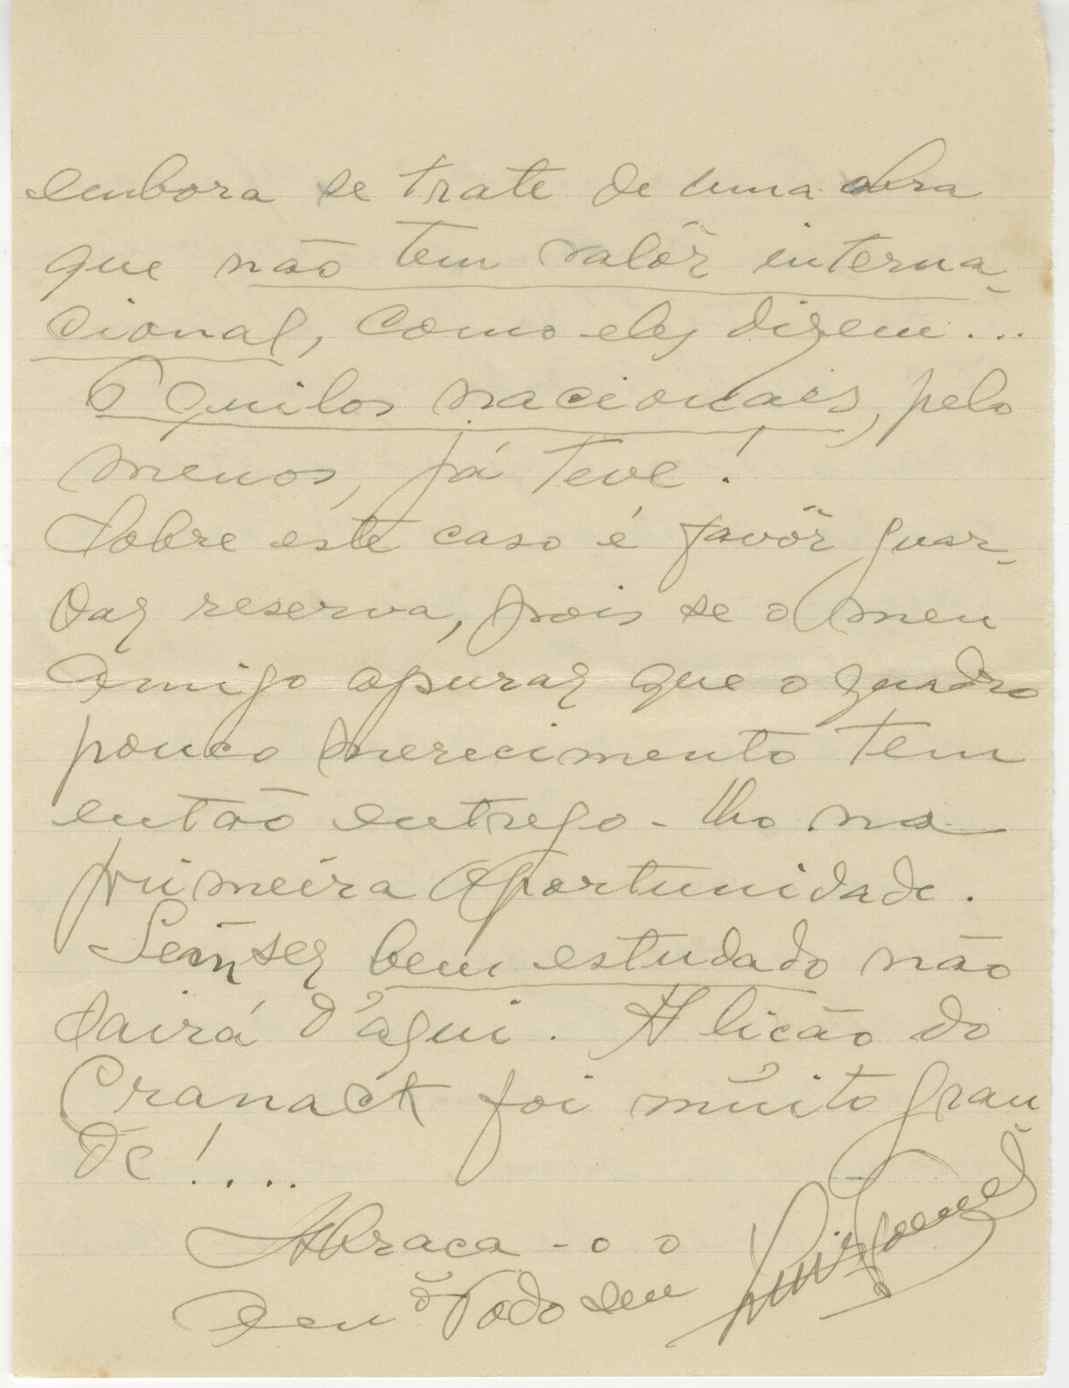 embora se trate de uma obra
que não tem valôr interna-
cional, como eles dizem...
6 quilos nacionais, pelo
menos, já teve!
Sobre éste caso é favôr guar-
dar reserva, pois se o meu
amigo apurar que o quadro
pouco merecimento tem
então entrego-lho na
primeira oportunidade.
Sem ser bem estudado não
sairá d'aqui. A licão do
Cranack foi muito gran
de!....
Abraca-o o
seu Todo seu
Luiz Gomes